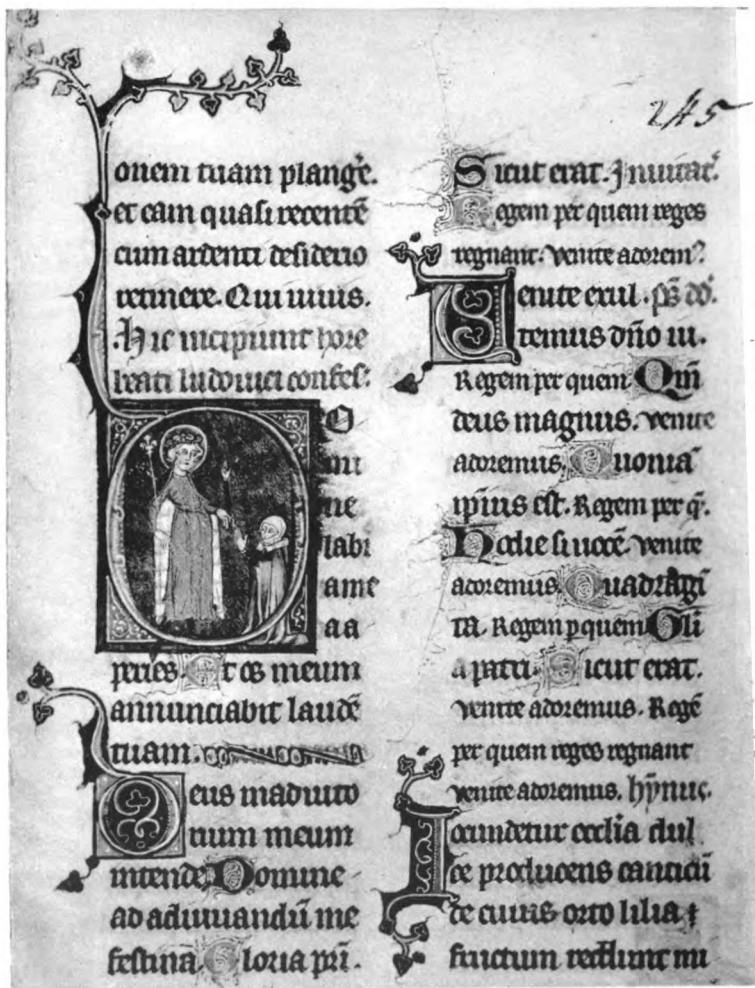 245
onem tuam plang̃e.
et eam quasi recentẽ
cum ardenti desiderio
retinere. Qui uiuis.
Hic incipiunt hore
beati ludouici confes̃.
O
mi
ne
labi
ame
a a
peries. Et os meum
annunciabit laudẽ
tuam.
Deus in adiuto
rium meum
intende. Domine
ad adiuuandũ me
festina. Gloria pr̃i.
Sicut erat. Inuitat̃.
Regem per quem reges
regnant. venite adorem᷒
Venite exul. p̃s d̃o.
temus dño in.
Regem per quem. Qm̃
deus magnus. venite
adoremus. Quoniã
ipsius est. Regem per q̃.
Hodie si uocẽ. venite
adoremus. Quadragĩ
ta. Regem p quem Gli
a patri. Sicut erat.
venite adoremus. Regẽ
per quem reges regnant
venite adoremus. hỹnus.
Iocundetur eccl̃ia dul
ce producens canticũ
de cuius orto lilia &
fructum redd̃unt mi